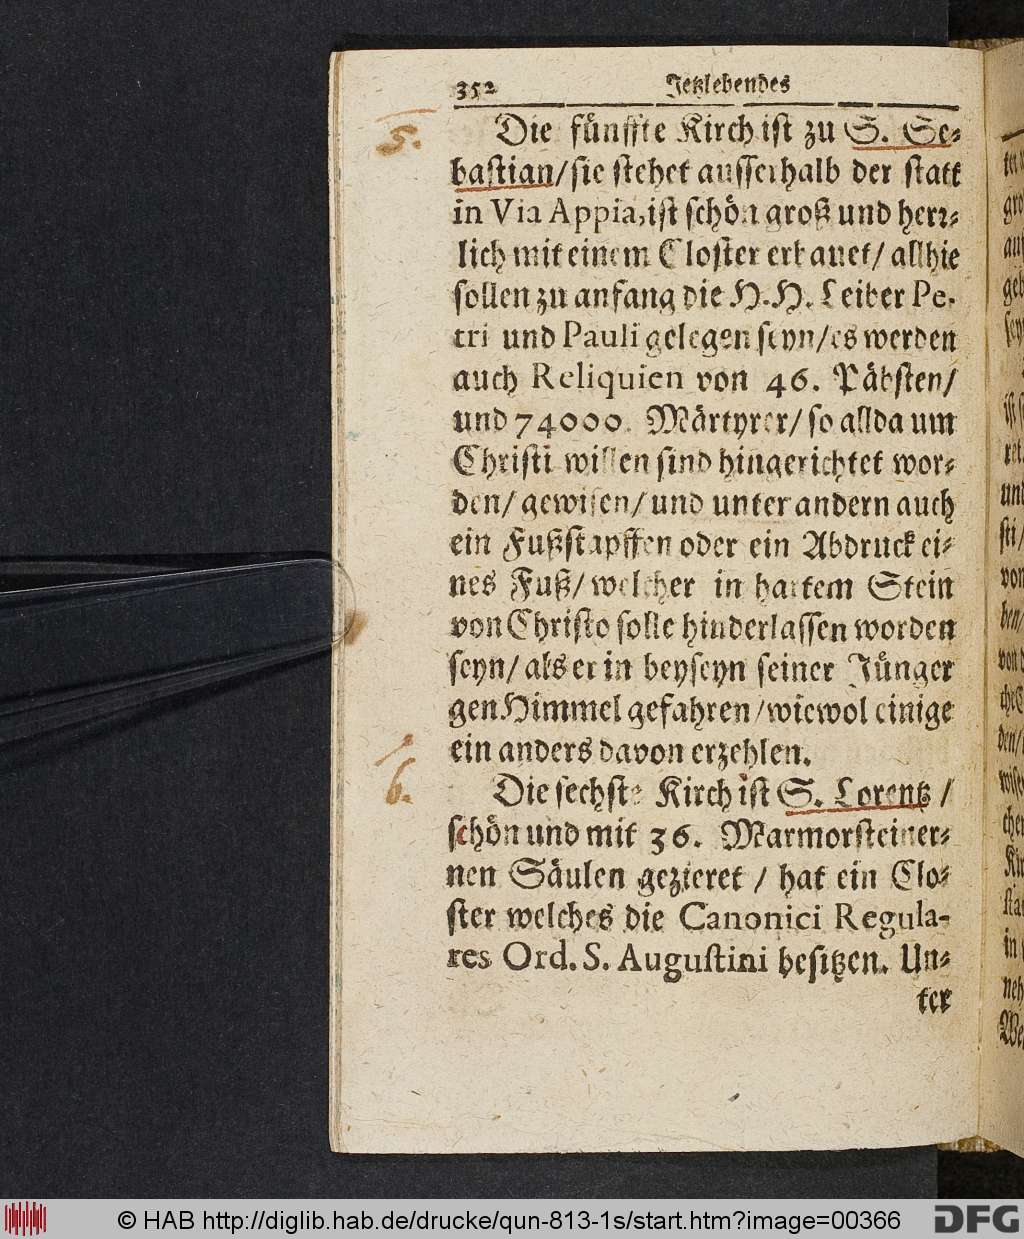 352 Jetzlebendes
5.
Die fünffte Kirch ist zu S. Se-
bastian/sie stehet ausserhalb der statt
in Via Appia, ist schön groß und herr-
lich mit einem Closter erbauet/ allhie
sollen zu anfang die H.H. Leiber Pe-
tri und Pauli gelegen seyn/es werden
auch Reliquien von 46. Päbsten/
und 74000. Märtyrer/ so allda um
Christi willen sind hingerichtet wor-
den/ gewisen/ und unter andern auch
ein Fußstapffen oder ein Abdruck ei-
nes Fuß/ welcher in hartem Stein
von Christo solle hinderlassen worden
seyn/ als er in beyseyn seiner Jünger
gen Himmel gefahren/wiewol einige
ein anders davon erzehlen.
6.
Die sechste Kirch ist S. Lorentz /
schön und mit 36. Marmorsteiner-
nen Säulen gezieret / hat ein Clo-
ster welches die Canonici Regula-
res Ord. S. Augustini besitzen. Un-
ter
© HAB http://diglib.hab.de/drucke/qun-813-1s/start.htm?image=00366
DFG